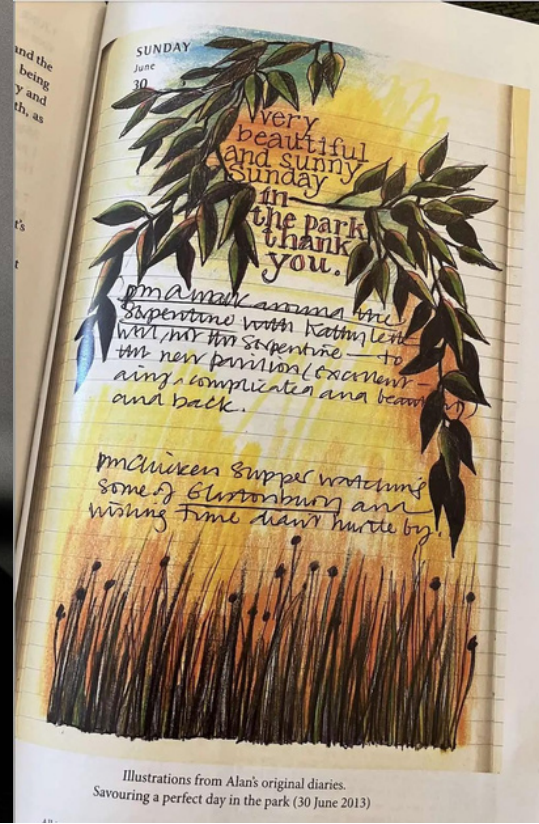 and the
being
y and
th, as
t's
t
SUNDAY
June
30
very
beautiful
and sunny
Sunday
in
the park
thank
you.
pm A walk around the
Serpentine with Kathy Lette
well, not the Serpentine — to
the new pavilion (excellent —
airy, complicated and beautiful)
and back.
pm Chicken supper watching
some of Glastonbury and
wishing Time didn't hurtle by.
Illustrations from Alan's original diaries.
Savouring a perfect day in the park (30 June 2013)